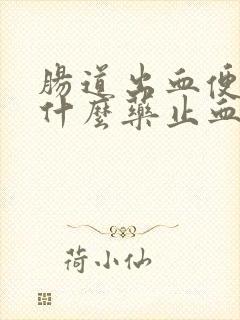 腸道出血便
什麼藥止血
荷小仙